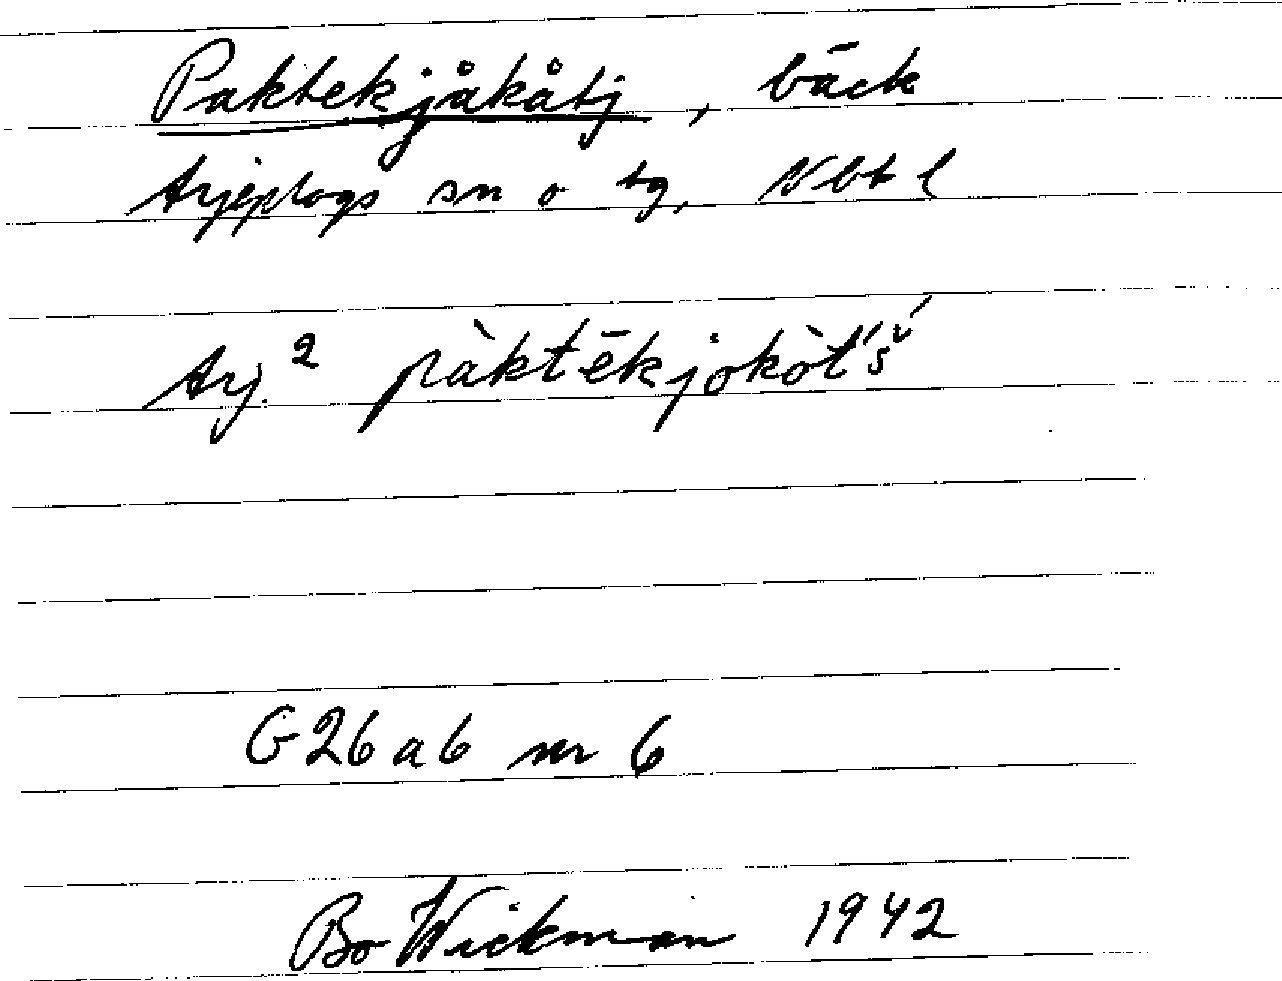 Paktekjåkåtj, bäck
Arjeplogs sn o tg, Nbt l
Arj.² pàktēkjokòt́š́
G26a6 nr 6
Bo Wickman 1942